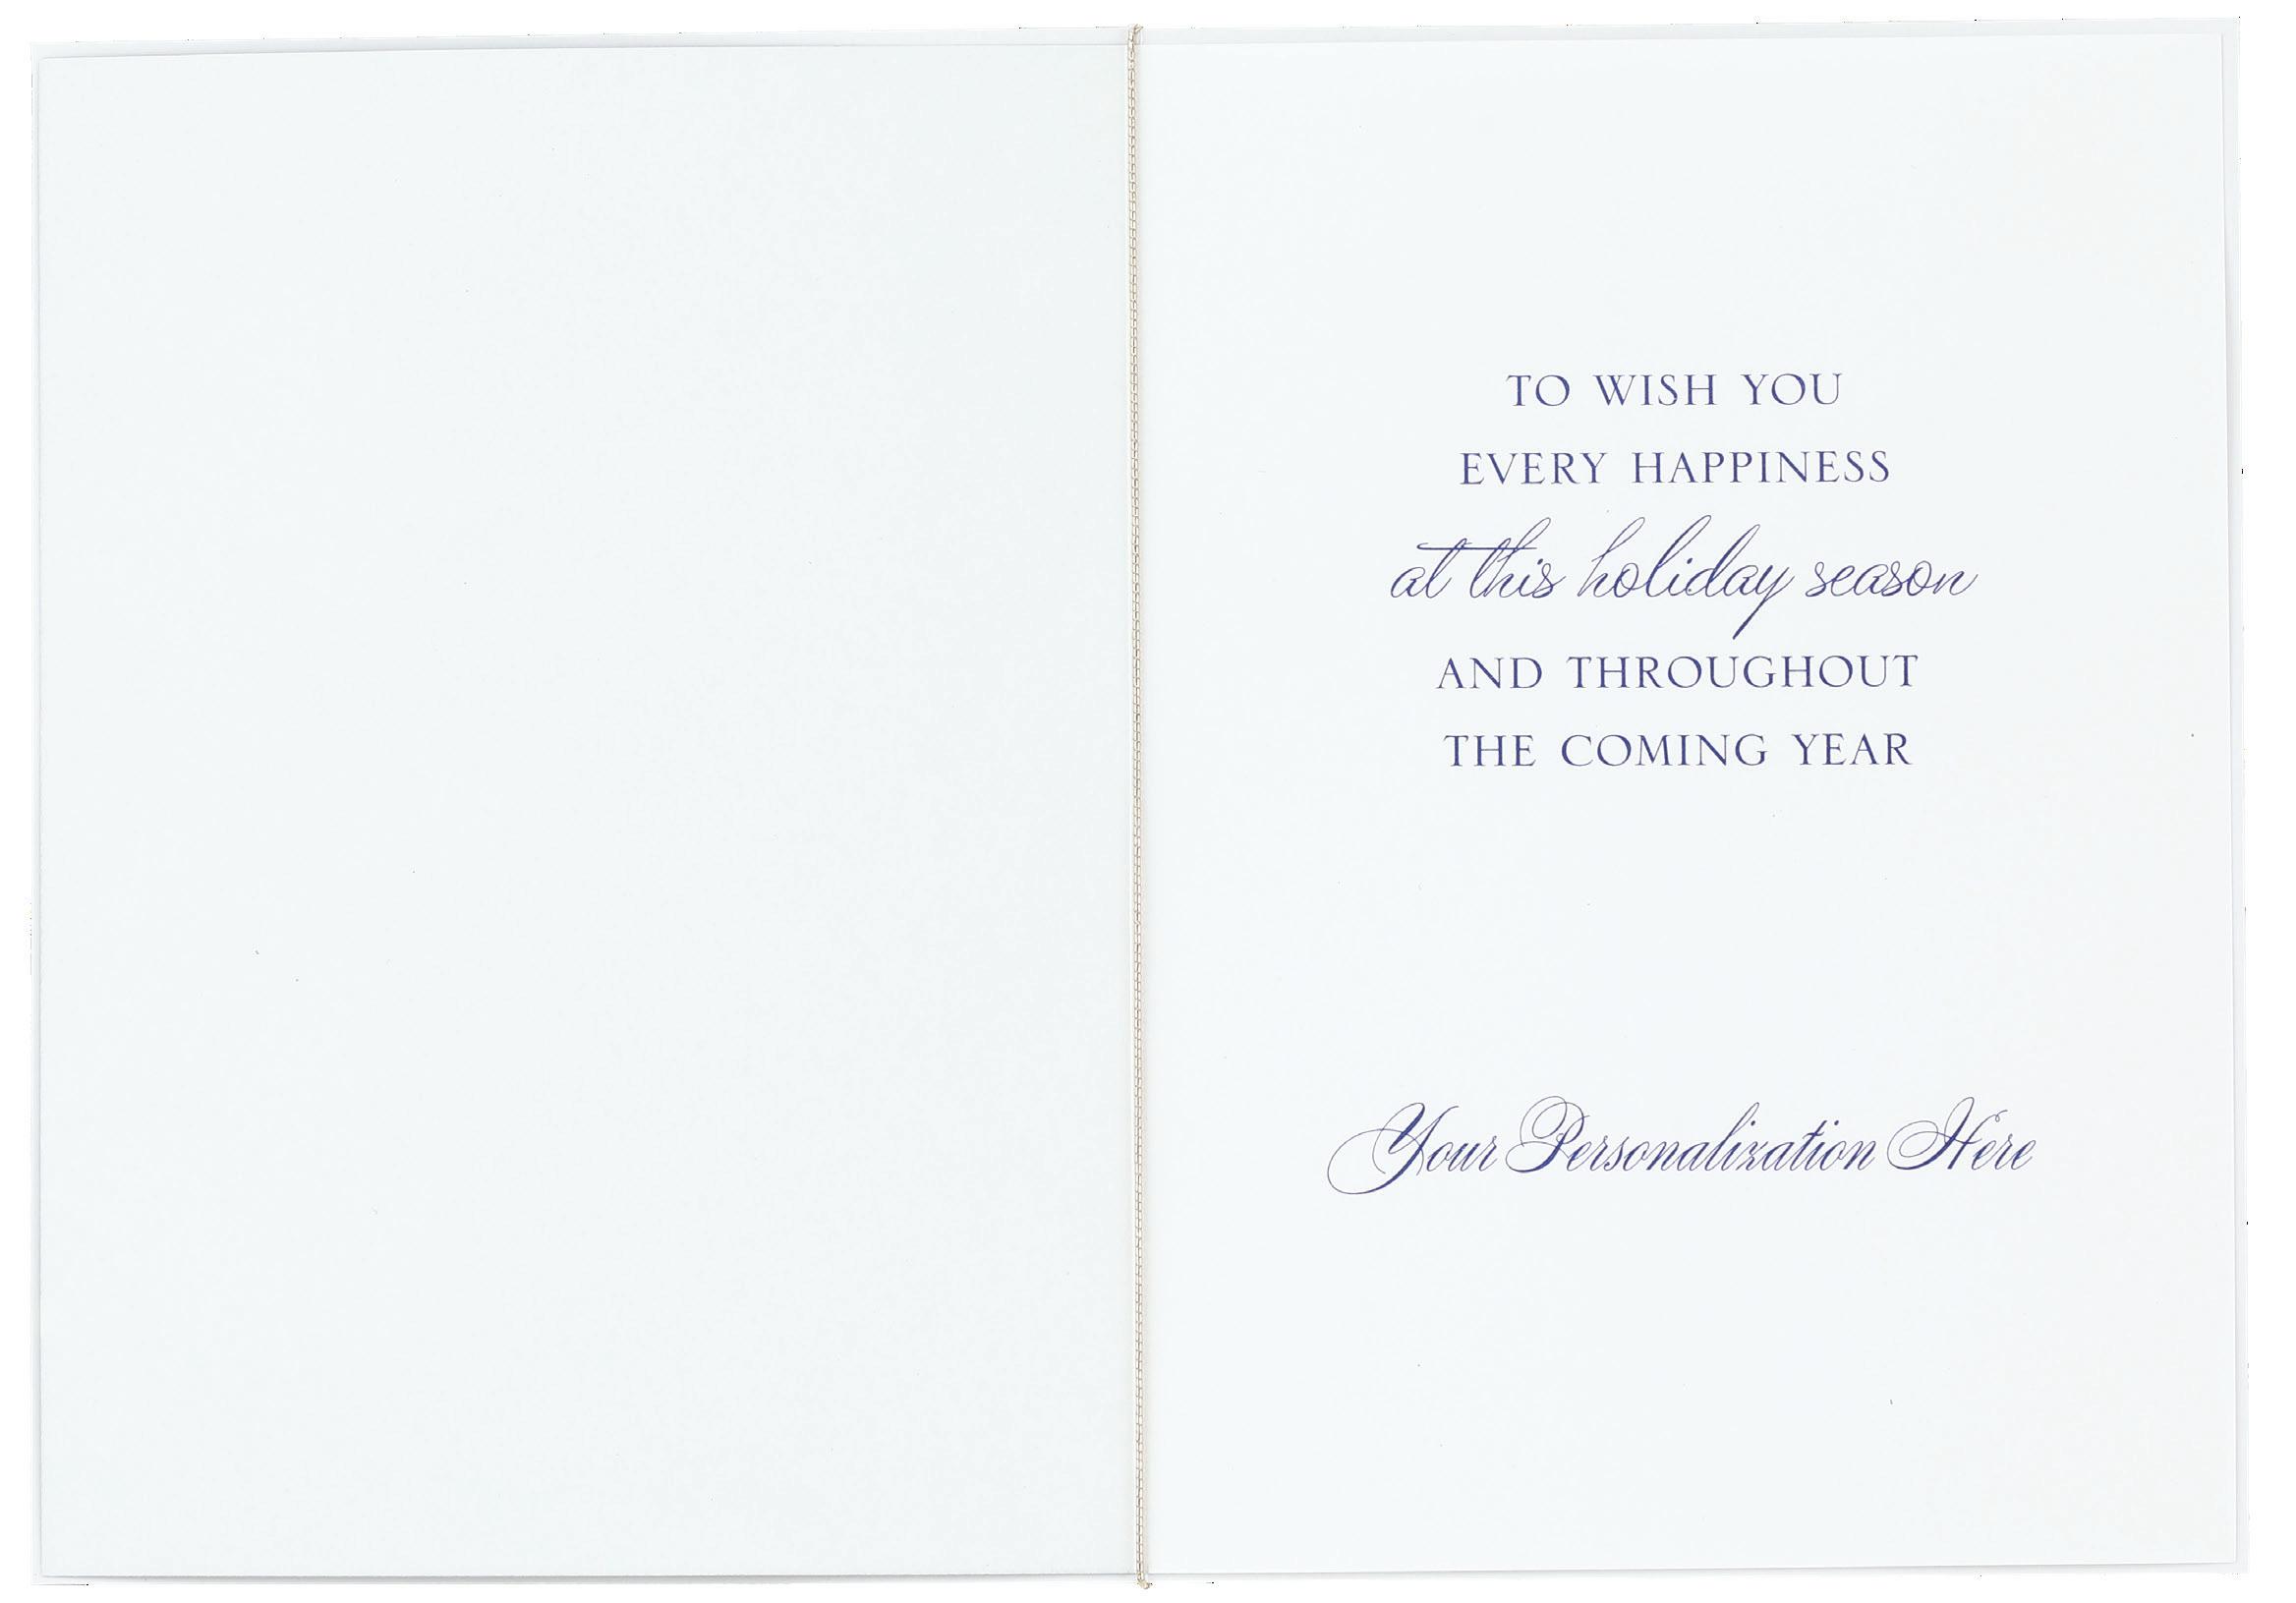 TO WISH YOU
EVERY HAPPINESS
at this holiday season
AND THROUGHOUT
THE COMING YEAR
Your Personalization Here